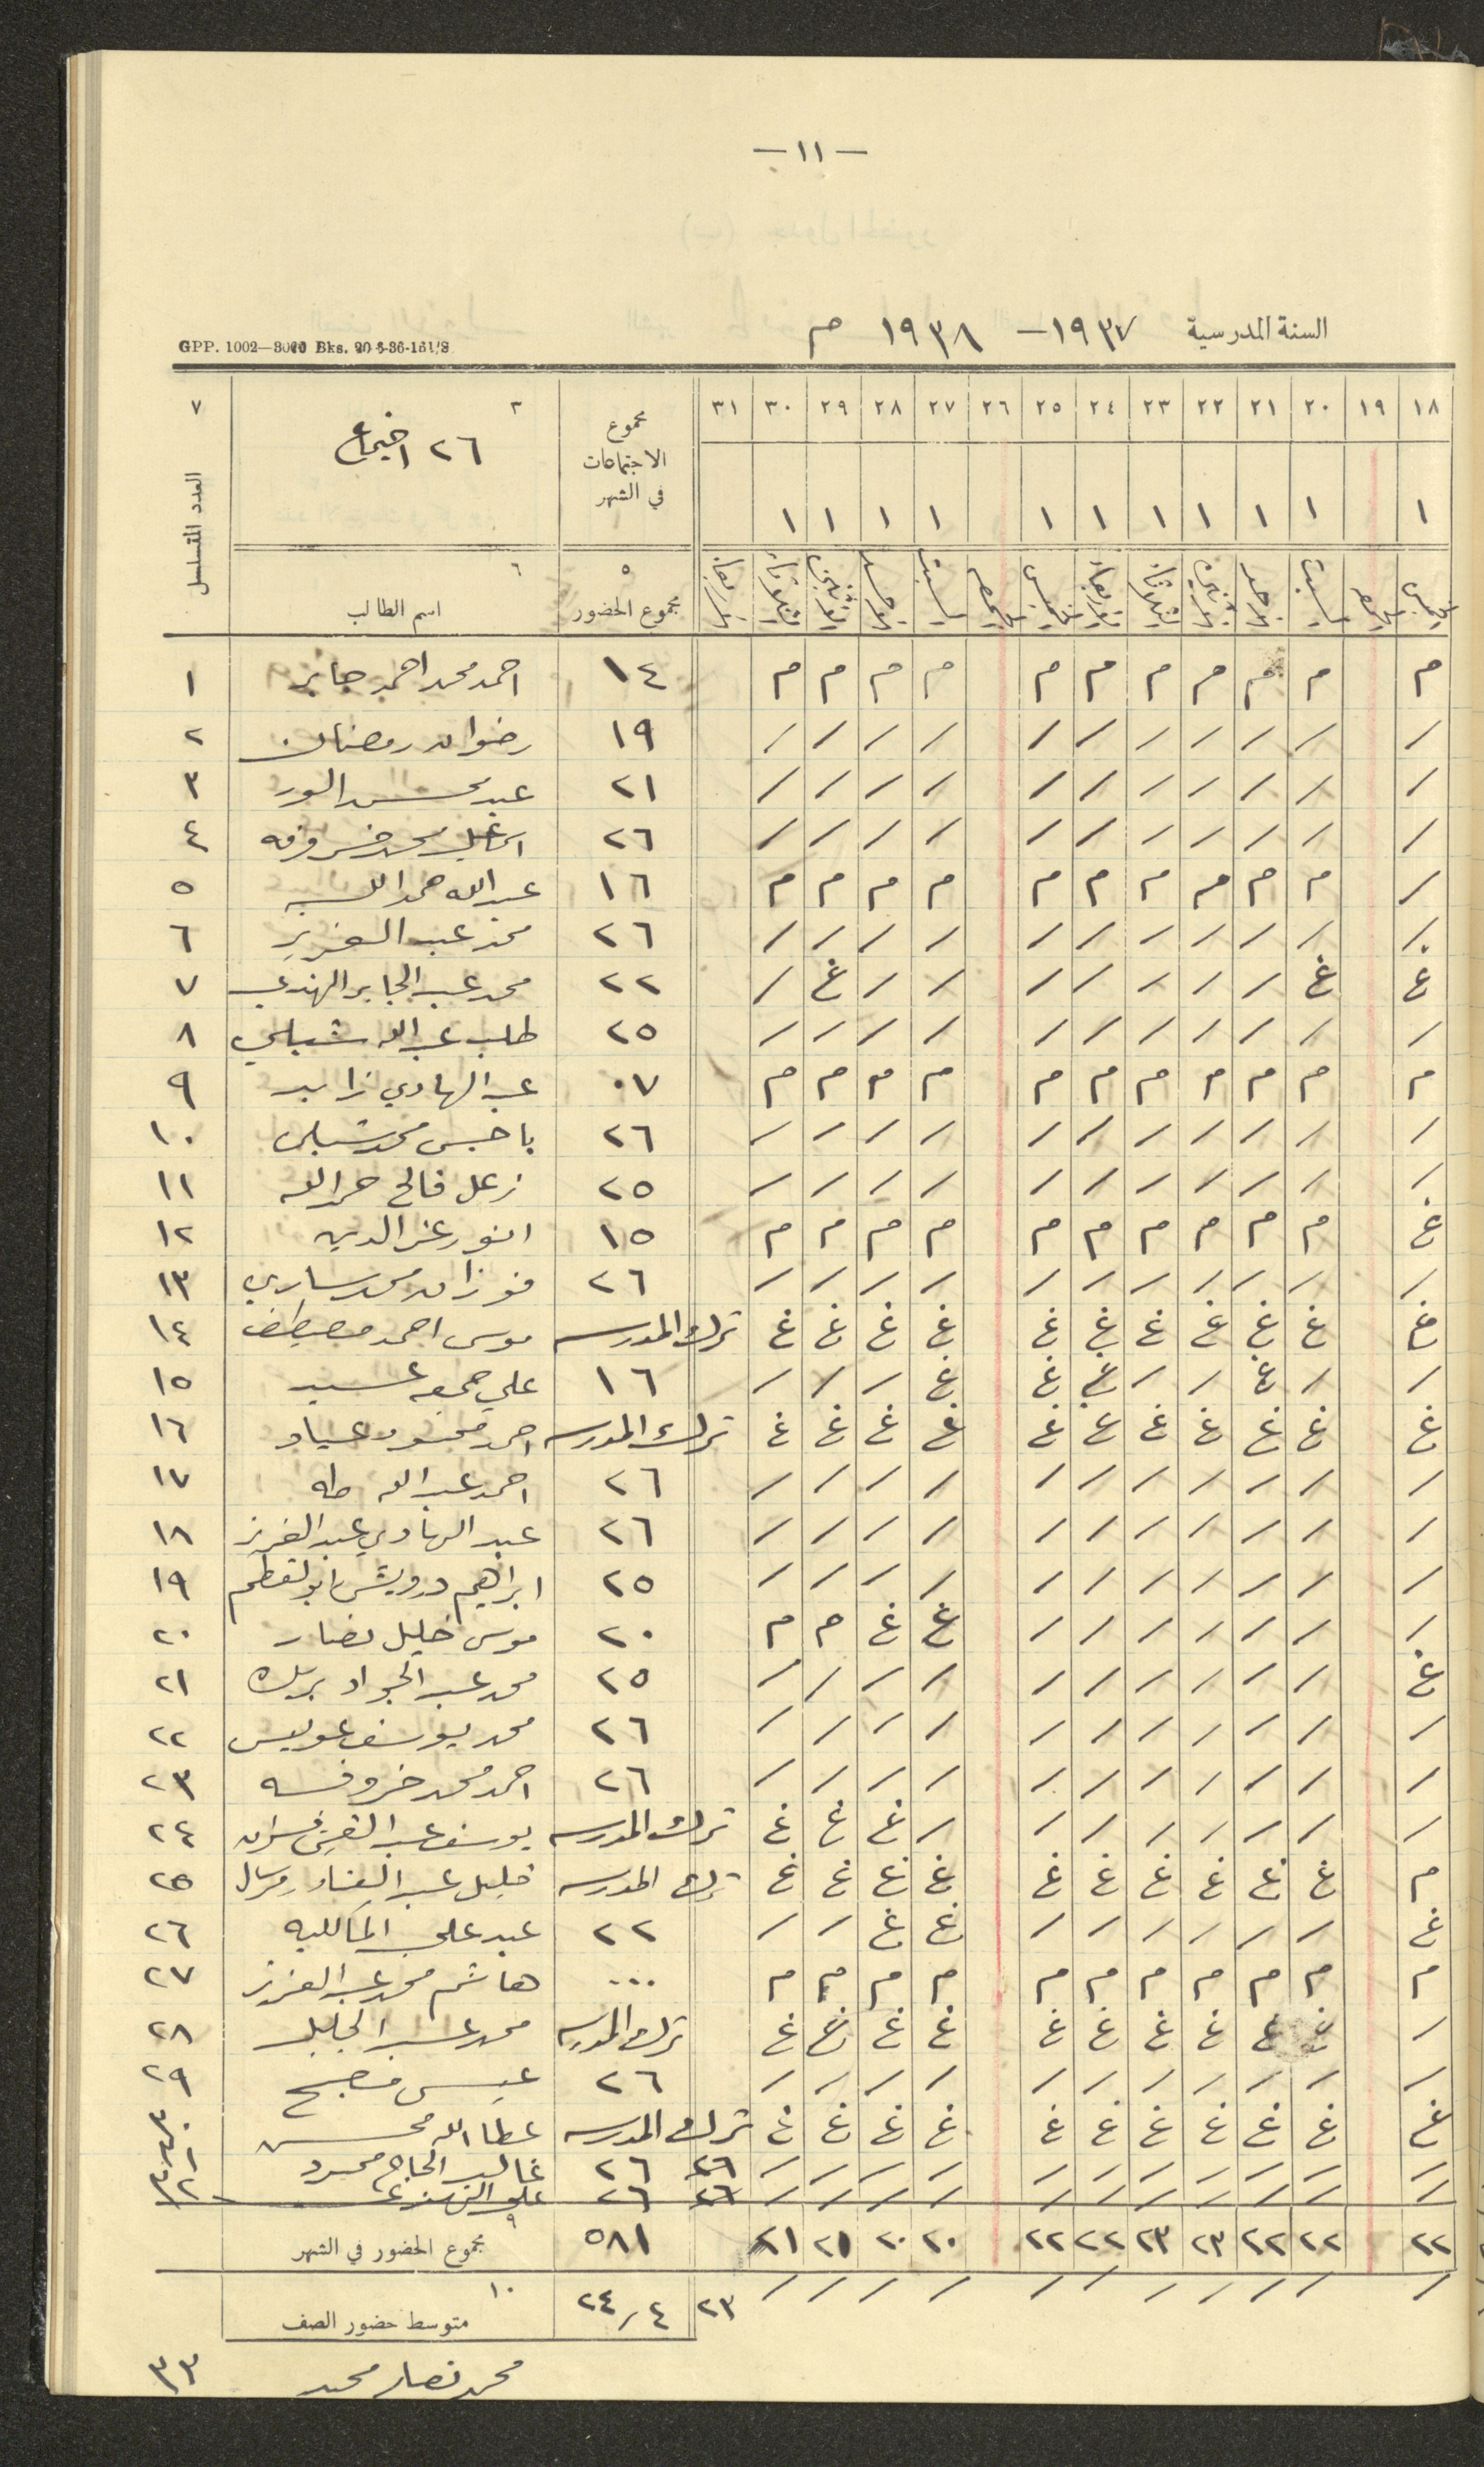 — ١١ —
السنة المدرسية ١٩٣٧ — ١٩٣٨ م
GPP. 1002—3000 Bks. 20-5-36-151/S
١٨ ١٩ ٢٠ ٢١ ٢٢ ٢٣ ٢٤ ٢٥ ٢٦ ٢٧ ٢٨ ٢٩ ٣٠ ٣١ مجموع الاجتماعات في الشهر ٣ ٢٦ اجتماع ٧ العدد المتسلسل
١ ١ ١ ١ ١ ١ ١ ١ ١ ١ ١
الخميس الجمعة السبت الاحد الاثنين الثلاثاء الاربعاء الخميس الجمعة السبت الاحد الاثنين الثلاثاء الاربعاء ٥ مجموع الحضور ٦ اسم الطالب
م م م م م م م م م م م ١٤ احمد محمد احمد جابر ١
/ / / / / / / / / / / ١٩ رضوان رمضان ٢
/ / / / / / / / / / / ٢١ عبد محسن ٣
/ / / / / / / / / / / ٢٦ اسماعيل محمد خسروفه ٤
/ م م م م م م م م م م ١٦ عبد الله حمد الله ٥
/ / / / / / / / / / / ٢٦ محمد عبد العزيز ٦
غ غ / / / / / / / غ / ٢٢ محمد عبد الجابر الهندي ٧
/ / / / / / / / / / / ٢٥ طلب عبد الله شبلي ٨
م م م م م م م م م م م ٠٧ عبد الهادي زايد ٩
/ / / / / / / / / / / ٢٦ باجس محمد شبلي ١٠
/ / / / / / / / / / / ٢٥ زعل فالح حمد الله ١١
غ م م م م م م م م م م ١٥ انور عز الدين ١٢
/ / / / / / / / / / / ٢٦ فوزان محمد ساري ١٣
غ غ غ غ غ غ غ غ غ غ غ ترك المدرسه موسى احمد مصطفى ١٤
/ / غ / / غ غ غ / / / ١٦ علي جمعه عسيد ١٥
غ غ غ غ غ غ غ غ غ غ غ ترك المدرسه احمد محمود عياد ١٦
/ / / / / / / / / / / ٢٦ احمد عبد الله طه ١٧
/ / / / / / / / / / / ٢٦ عبد الهادي عبد العزيز ١٨
/ / / / / / / / / / / ٢٥ ابراهيم درويش ١٩
/ / / / / / / غ غ م م ٢٠ موسى خليل نصار ٢٠
غ / / / / / / / / / / ٢٥ محمد عبد الجواد بريك ٢١
/ / / / / / / / / / / ٢٦ محمد يوسف عويس ٢٢
/ / / / / / / / / / / ٢٦ احمد محمد خروفه ٢٣
/ / / / / / / / غ غ غ ترك المدرسه يوسف عبد ٢٤
م غ غ غ غ غ غ غ غ غ غ ترك المدرسه خليل عبد ٢٥
غ / / / / / / غ غ / / ٢٢ عبد علي ٢٦
م م م م م م م م م م م ... هاشم محمد عبد العزيز ٢٧
/ غ غ غ غ غ غ غ غ غ غ ترك المدرسه محمد عبد الجليل ٢٨
/ / / / / / / / / / / ٢٦ عيسى مصبح ٢٩
غ غ غ غ غ غ غ غ غ غ غ ترك المدرسه عطا الله محسن ٣٠
/ / / / / / / / / / / ٢٦ ٢٦ غالب الحاج محمود ٣١
/ / / / / / / / / / / ٢٦ ٢٦ علي ٣٢
٢٢ ٢٢ ٢٢ ٢٣ ٢٣ ٢٢ ٢٢ ٢٠ ٢٠ ٢١ ٢١ ٥٨١ ٩ مجموع الحضور في الشهر
/ / / / / / / / / / / ٢٣ ٢٤/٤ ١٠ متوسط حضور الصف
محمد نصار محمد ٣٣